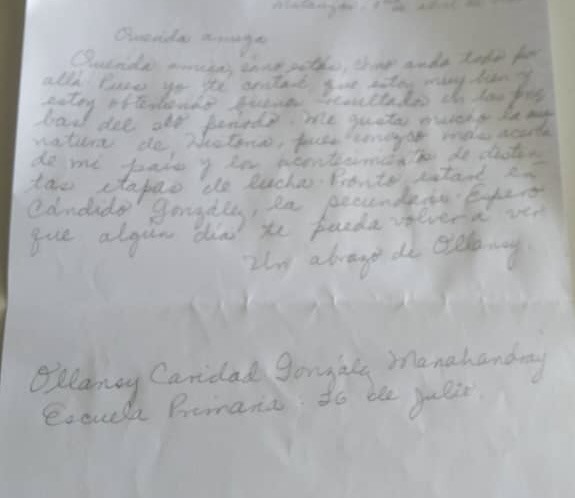 Matanzas, de abril de
Querida amiga
Querida amiga, cómo estás, cómo anda todo por
allá. Pues yo te contaré que estoy muy bien y
estoy obteniendo buenos resultados en las prue
bas del 2do período. Me gusta mucho la asig
natura de Historia, pues conozco más acerca
de mi país y los acontecimientos de distin
tas etapas de lucha. Pronto estaré en
Cándido González, la secundaria. Espero
que algún día te pueda volver a ver
Un abrazo de Ollansy.
Ollansy Caridad González
Escuela Primaria. 26 de Julio.